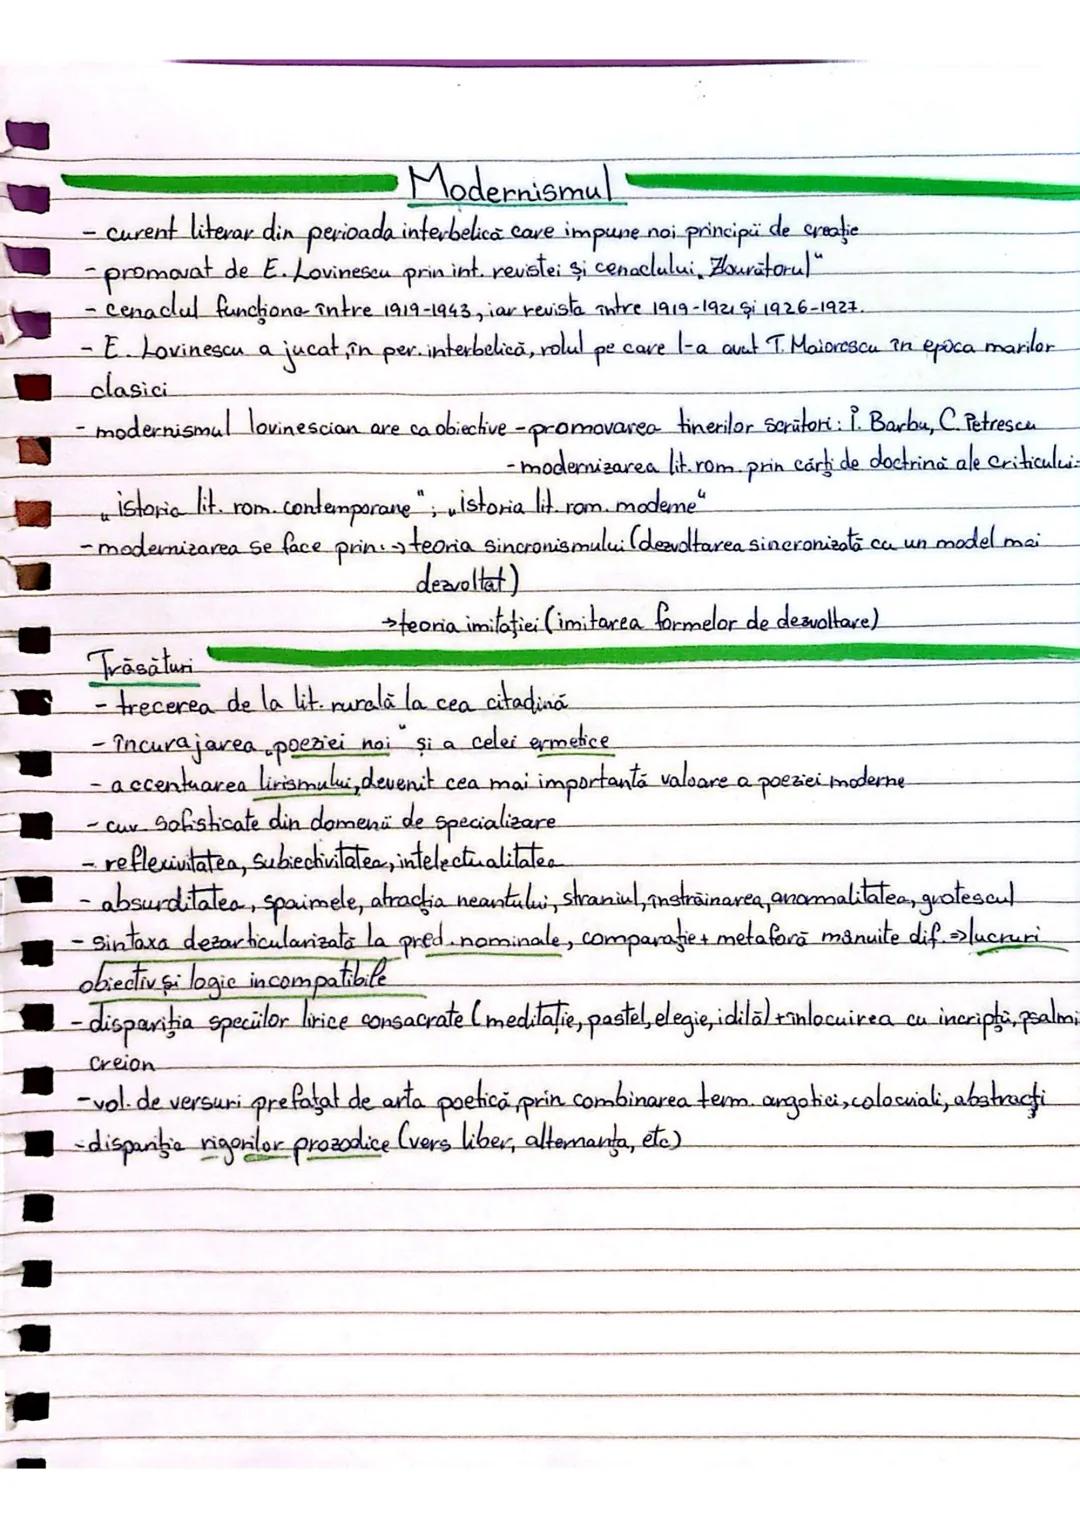 Modernismul
- curent literar din perioada interbelică care impune noi principii de creație
- promovat de E. Lovinescu prin int. revistei și cenaclului „Zburătorul“
- cenaclul funcționa între 1919-1943, iar revista între 1919-1921 și 1926-1927.
- E. Lovinescu a jucat, în per. interbelică, rolul pe care l-a avut T. Maiorescu în epoca marilor
clasici
- modernismul lovinescian are ca obiective - promovarea tinerilor scriitori: I. Barbu, C. Petrescu
- modernizarea lit. rom. prin cărți de doctrină ale criticului:
„istoria lit. rom. contemporane“; „istoria lit. rom. moderne“
- modernizarea se face prin: → teoria sincronismului (dezvoltarea sincronizată cu un model mai
dezvoltat)
→ teoria imitației (imitarea formelor de dezvoltare)
Trăsături
- trecerea de la lit. rurală la cea citadină
- încurajarea „poeziei noi“ și a celei ermetice
- accentuarea lirismului, devenit cea mai importantă valoare a poeziei moderne
- cuv. sofisticate din domenii de specializare
- reflexivitatea, subiectivitatea, intelectualitatea
- absurditatea, spaimele, atracția neantului, straniul, înstrăinarea, anormalitatea, grotescul
- sintaxa dezarticularizată la pred. nominale, comparație + metaforă mânuite dif. => lucruri
obiectiv și logic incompatibile
- dispariția speciilor lirice consacrate (meditație, pastel, elegie, idilă) + înlocuirea cu incripții, psalmi
creion
- vol. de versuri prefațat de arta poetică, prin combinarea term. argotici, colocviali, abstracți
- dispariția rigorilor prozodice (vers liber, alternanța, etc)